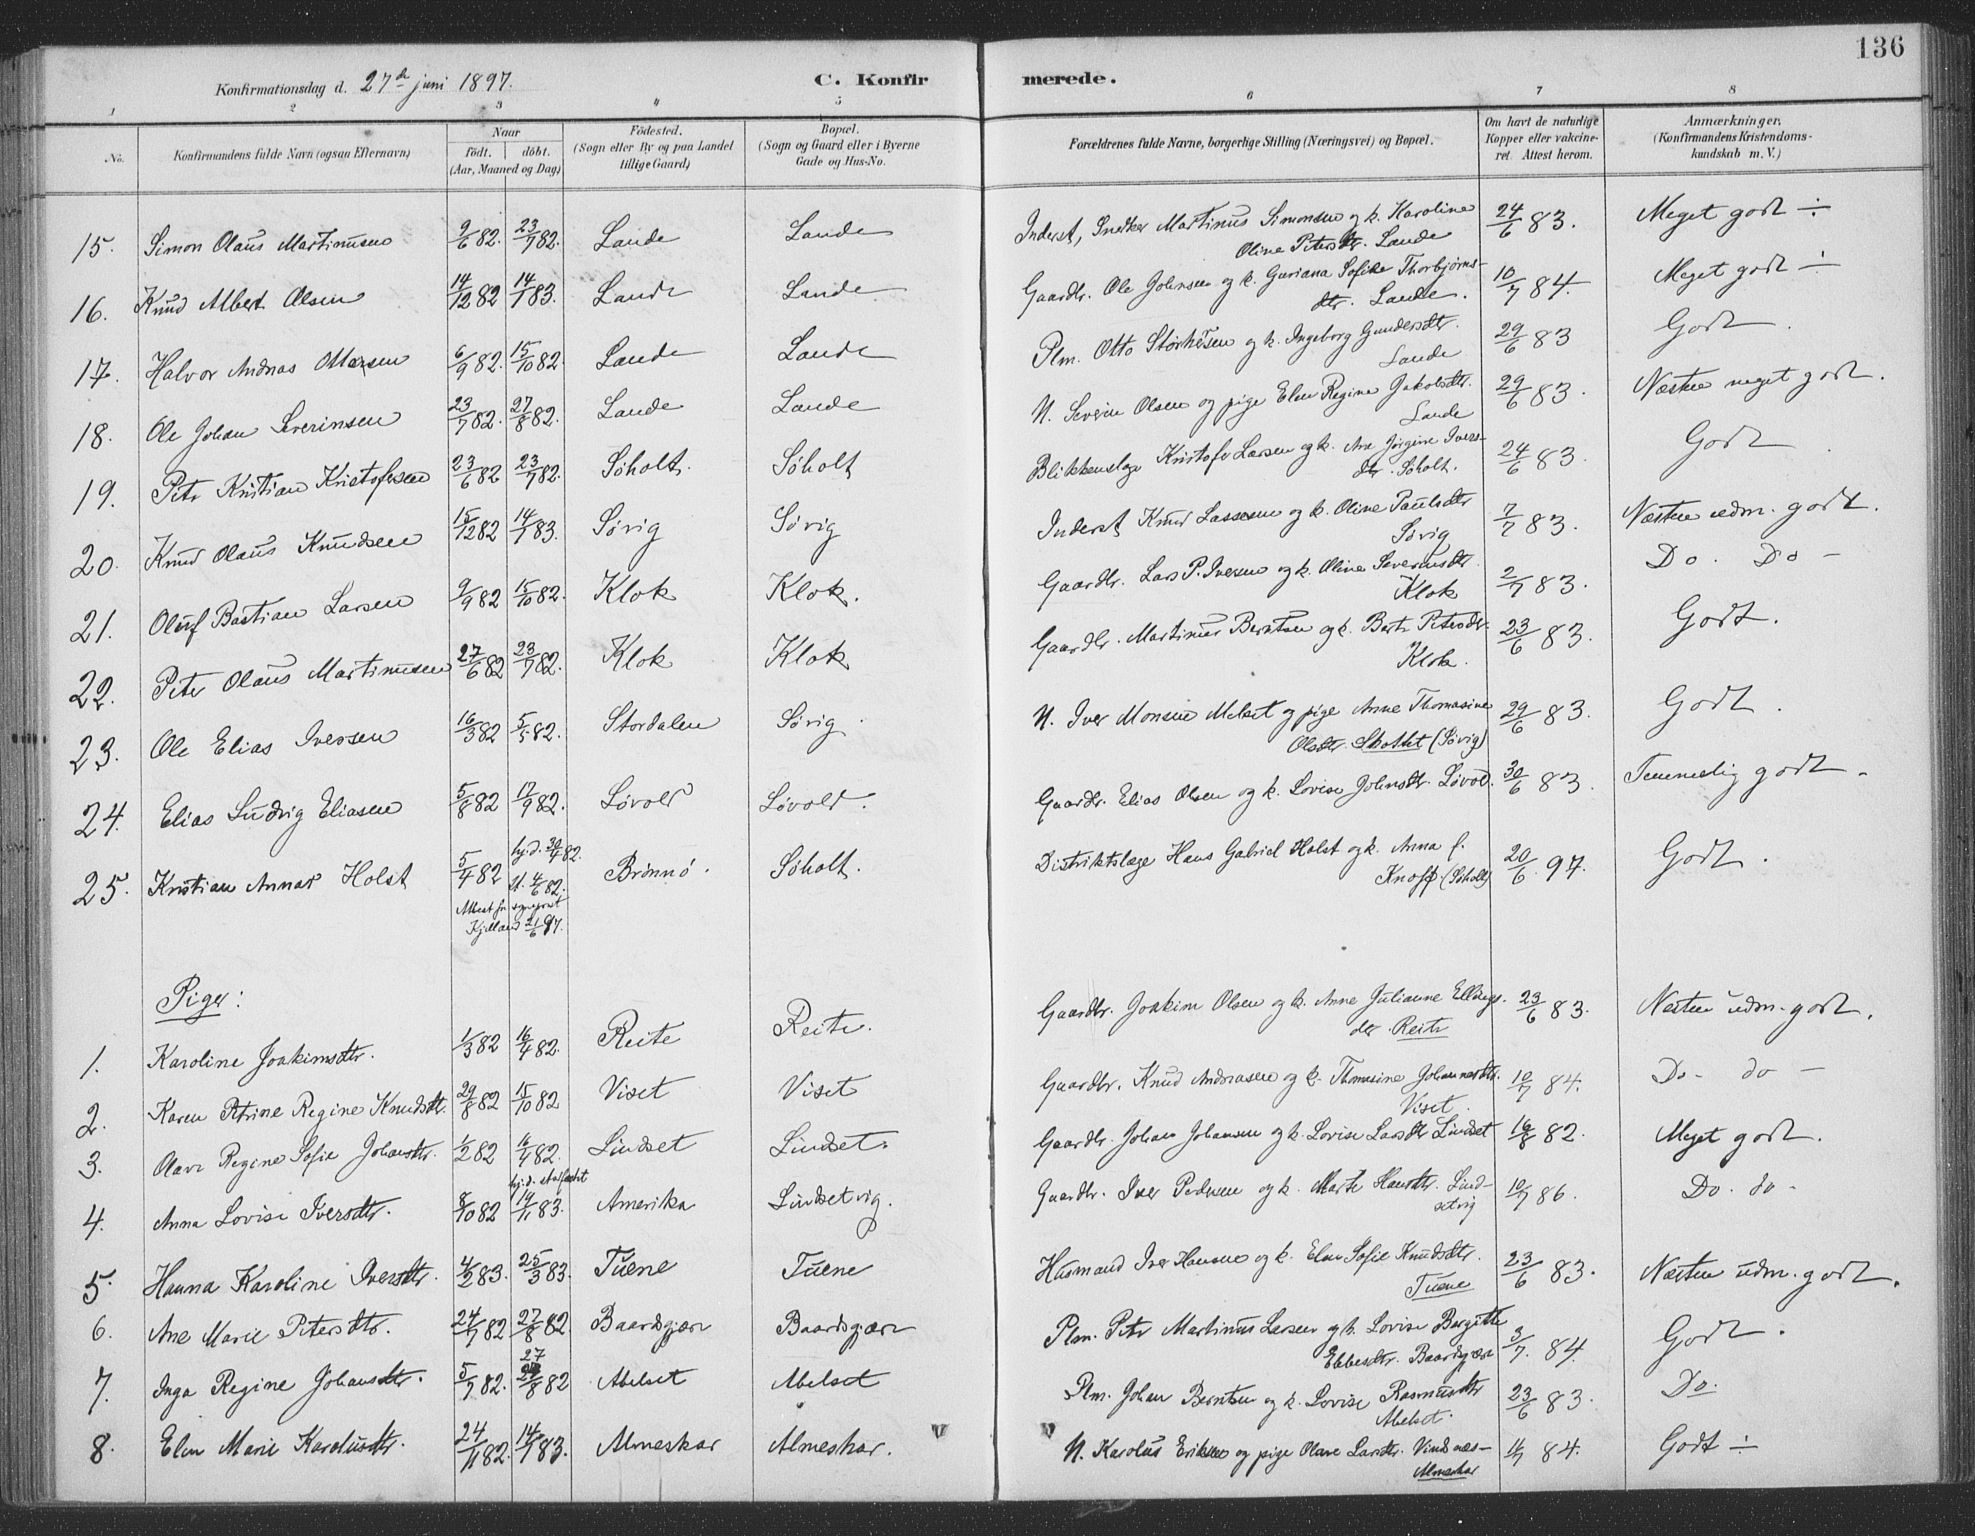 136
Konfirmationsdag d. 27de juni 1897. C. Konfirmerede.
1 2 3 4 5 6 7 8
No. Konfirmandens fulde Navn (ogsaa Efternavn) Naar Födt. döbt. (Aar, Maaned og Dag) Födested. (Sogn eller By og paa Landet tillige Gaard) Bopæl. (Sogn og Gaard eller i Byerne Gade og Hus-No. Forældrenes fulde Navne, borgerlige Stilling (Næringsvei) og Bopæl. Om havt de naturlige Kopper eller vakcineret. Attest herom. Anmærkninger. (Konfirmandens Kristendomskundskab m. V.)
15. Simon Olaus Martinusen 9/6 82. 23/7 82. Lande Lande Inderst, Snedker Martinus Simonsen og k. Karoline 24/6 83. Meget godt ÷
Oline Petersdtr. Lande
16. Knud Albert Olsen 14/12 82 14/1 83. Lande Lande Gaardbr. Ole Johnsen og k. Guriana Sofie Thorbjørns- 10/7 84. Meget godt ÷
dtr. Lande.
17. Halvor Andreas Ottesen 6/9 82. 15/10 82. Lande Lande Plm. Otto Størkesen og k. Ingeborg Gundersdtr. 29/6 83 Godt.
Lande
18. Ole Johan Severinsen 23/7 82. 27/8 82. Lande Lande U. Severin Olsen og pige Elen Regine Jakobsdtr. 29/6 83. Næsten meget godt.
Lande
19. Peter Kristian Kristofersen 23/6 82 23/7 82. Søholt. Søholt Blikkenslager Kristofer Larsen og k. Ane Jørgine Ivers- 24/6 83. Godt
dtr. Søholt.
20. Knud Olaus Knudsen 15/12 82 14/1 83. Sørig Sørig Inderst Knud Lassesen og k. Oline Paulsdtr 7/7 83. Næsten udm. godt.
Sørig
21. Oluf Bastian Larsen 9/9 82 15/10 82. Klok Klok. Gaardbr. Lars P. Iversen og k. Oline Severinsdtr. 2/7 83. Do. Do -
Klok
22. Peter Olaus Martinusen 27/6 82 23/7 82. Klok Klok Gaardbr. Martinus Berntsen og k. Berte Petersdtr. 23/6 83. Godt.
Klok.
23. Ole Elias Iversen 16/3 82 5/5 82. Stordalen Sørig. U. Iver Monsen Melset og pige Anne Thomasine 29/6 83. Godt.
Olsdtr. Skottet (Sørig)
24. Elias Ludvig Eliasen 5/8 82 17/9 82. Løvold Løvold. Gaardbr. Elias Olsen og k. Lovise Johnsdtr. Løvold. 30/6 83. Temmelig godt.
25. Kristian Annar Holst 5/4 82 hj.d. 30/4 82. Brønnø. Søholt. Distriktslæge Hans Gabriel Holst og k. Anna f. 20/6 97. Godt.
st. 4/6 82. Knoff. (Søholt)
Attest fra sogneprest
Kjelland 21/6 97.
Piger:
1. Karoline Joakimsdtr. 1/3 82 16/4 82. Reite Reite. Gaardbr. Joakim Olsen og k. Anne Julianne Ellings- 23/6 83. Næsten udm. godt.
dtr. Reite
2. Karen Petrine Regine Knudsdtr. 29/8 82 15/10 82 Viset Viset Gaardbr. Knud Andreasen og k. Thomasine Johannesdtr. 10/7 84. Do- do -
Viset.
3. Olave Regine Sofie Johansdtr. 1/2 82 16/4 82. Lindset Lindset. Gaardbr. Johan Johansen og k. Lovise Larsdtr Lindset 16/8 82. Meget godt.
4. Anna Lovise Iversdtr. 8/10 82 hj.d. stadfæstet 19/11 83. Amerika Lindsetvig. Gaardbr. Iver Pedersen og k. Marte Hansdtr. Lind- 10/7 86. Do. do-
setvig
5. Hanna Karoline Iversdtr. 4/2 83. 25/3 83. Tuene Tuene Husmand Iver Hansen og k. Elen Sofie Knudsdtr. 23/6 83. Næsten udm. godt.
Tuene
6. Ane Marie Petersdtr. 24/7 82 27/8 82 Baardsgjære Baardsgjære Plm. Peter Martinus Larsen og k. Lovise Bergitte 3/7. 84. Godt.
Ebbesdtr. Baardsgjære
7. Inga Regine Johansdtr. 5/7 82. 27/8 82 Abelset Abelset Plm. Johan Berntsen og k. Lovise Rasmusdtr 23/6 83. Do.
Abelset.
8. Elen Marie Karolusdtr. 24/11 82. 14/1 83. Almeskar Almeskar. U. Karolus Eriksen og pige Olave Larsdtr. Vindnæs- 84. Godt ÷
Almeskar